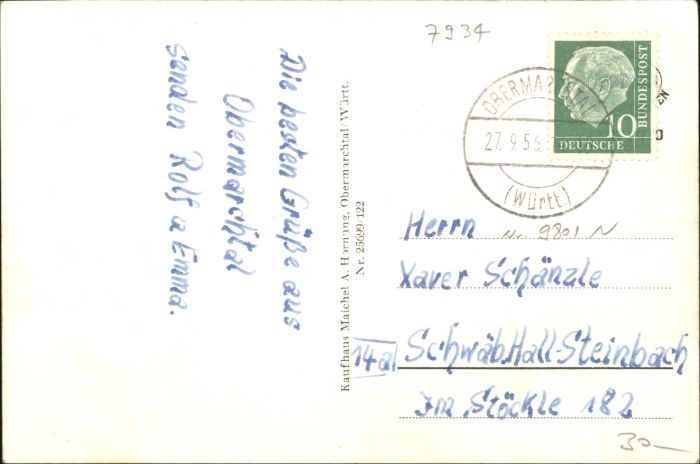 Die besten Grüße aus
Obermarchtal
senden Rolf u. Emma.
Kaufhaus Maichel A. Hornung, Obermarchtal/Württ.
Nr. 25699/122
7934
10
DEUTSCHE
BUNDESPOST
27.9.56
(Württ.)
Herrn
No. 9801 N
Xaver Schänzle
14a) Schwäb.Hall-Steinbach
Im Stöckle 182
30—